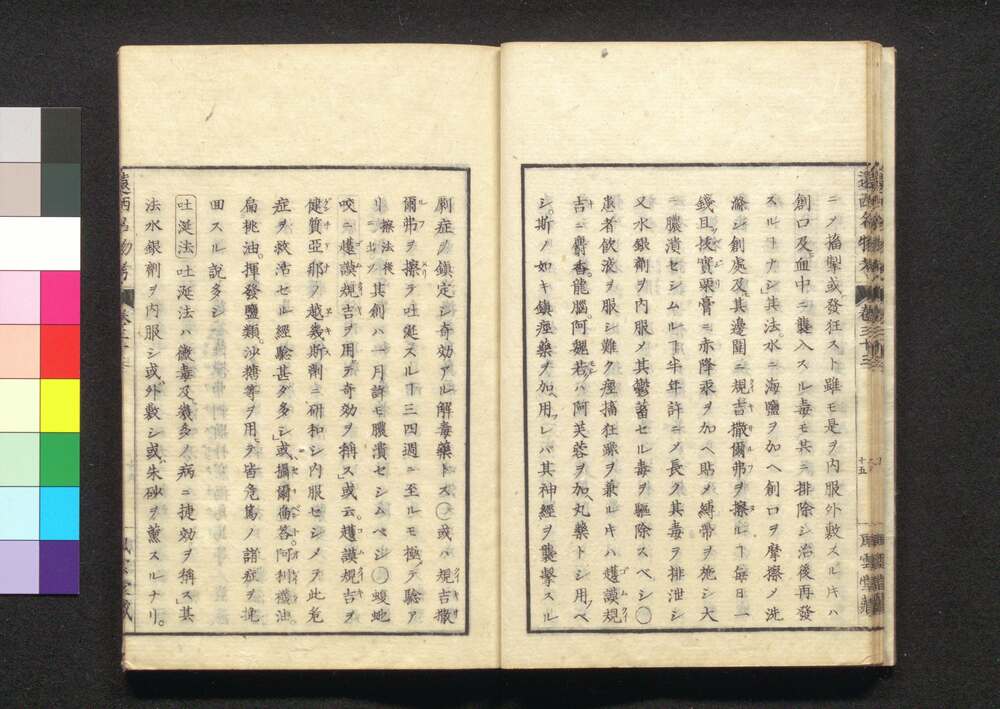 シノ搐掣或ハ發狂スト雖モ是ヲ内服外敷スルキハ
創口及血中ニ襲入スル毒モ其ニ排除シ治後再發
スルヿナシ其法水ニ海鹽ヲ加ヘ創口ヲ摩擦メ洗
滌シ創處及其邊圍ニ規吉撒爾弗ヲ擦ルヿ毎日一
錢耳抜實栗膏ニ赤降汞ヲ加ヘ貼メ縛帶ヲ施シ大
ニ膿潰セシムルヿ半年許ニメ長ク其毒ヲ排泄シ
又水銀劑ヲ内服メ其鬱蓄セル毒ヲ驅除スベシ◯
患者飲液ヲ服シ難ク痙搐狂躁ヲ兼ルキハ
吉ニ麝香龍腦阿魏若ハ阿芙蓉ヲ加丸藥トシ用ベ
シ斯ノ如キ鎮痙藥ヲ加用レバ其神經ヲ襲擊スル
十五
劇症ヲ鎮定シ奇効アル解毒藥トス◯或ハ規吉撒
爾弗ヲ擦ラ吐涎スルヿ三四週ニ至ルモ極テ驗ア
リ擦法後ニ出ツ其創ハ一月許モ膿潰セシムベシ◯蝮蛇
咬ニ謨規吉ヲ用テ奇効ヲ稱ス或云謨規吉ヲ
健質亞那ノ越幾斯劑ニ研和シ内服セシメテ此危
症ヲ救活セル經驗甚ダ多シ或攝爾
扁桃油揮發鹽類沙糖等ヲ用テ皆危篤ノ諸症ヲ挽
囬スル説多シ
吐涎法 吐涎法ハ黴毒及幾多ノ病ニ捷効ヲ稱ス其
法水銀劑ヲ内服シ或ハ外敷シ或ハ朱砂ヲ薰スルナリ。